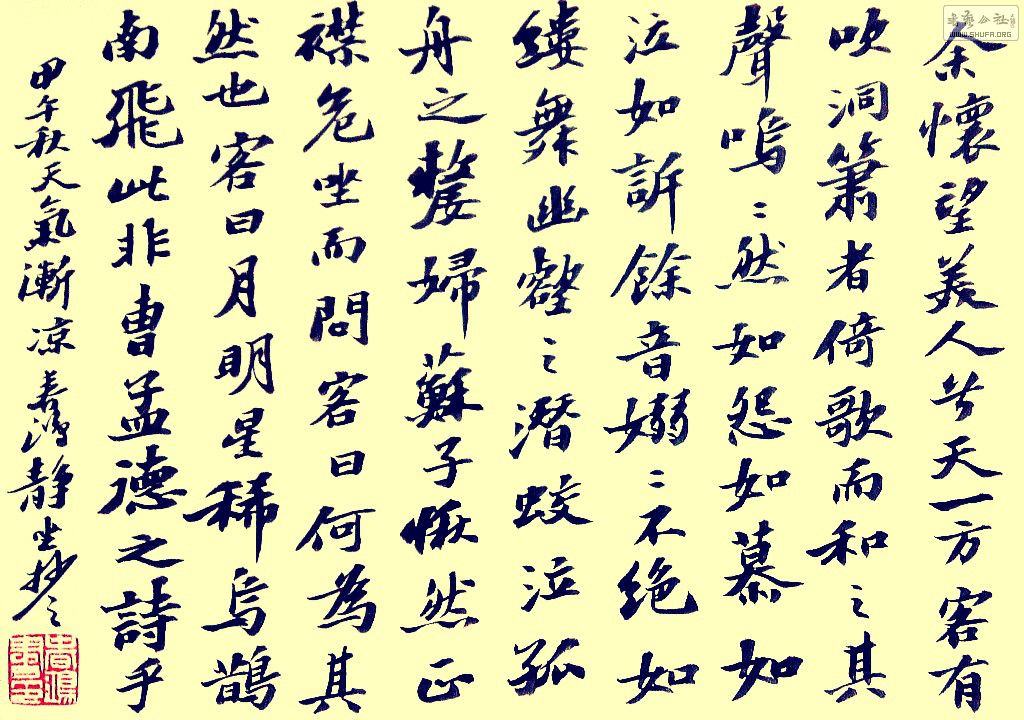 余懷望美人兮天一方客有
吹洞簫者倚歌而和之其
聲嗚〻然如怨如慕如
泣如訴餘音嫋〻不絕如
縷舞幽壑之潛蛟泣孤
舟之嫠婦蘇子愀然正
襟危坐而問客曰何為其
然也客曰月明星稀烏鵲
南飛此非曹孟德之詩乎
甲午秋天氣漸凉靜坐抄之
WWW.SHUFA.ORG